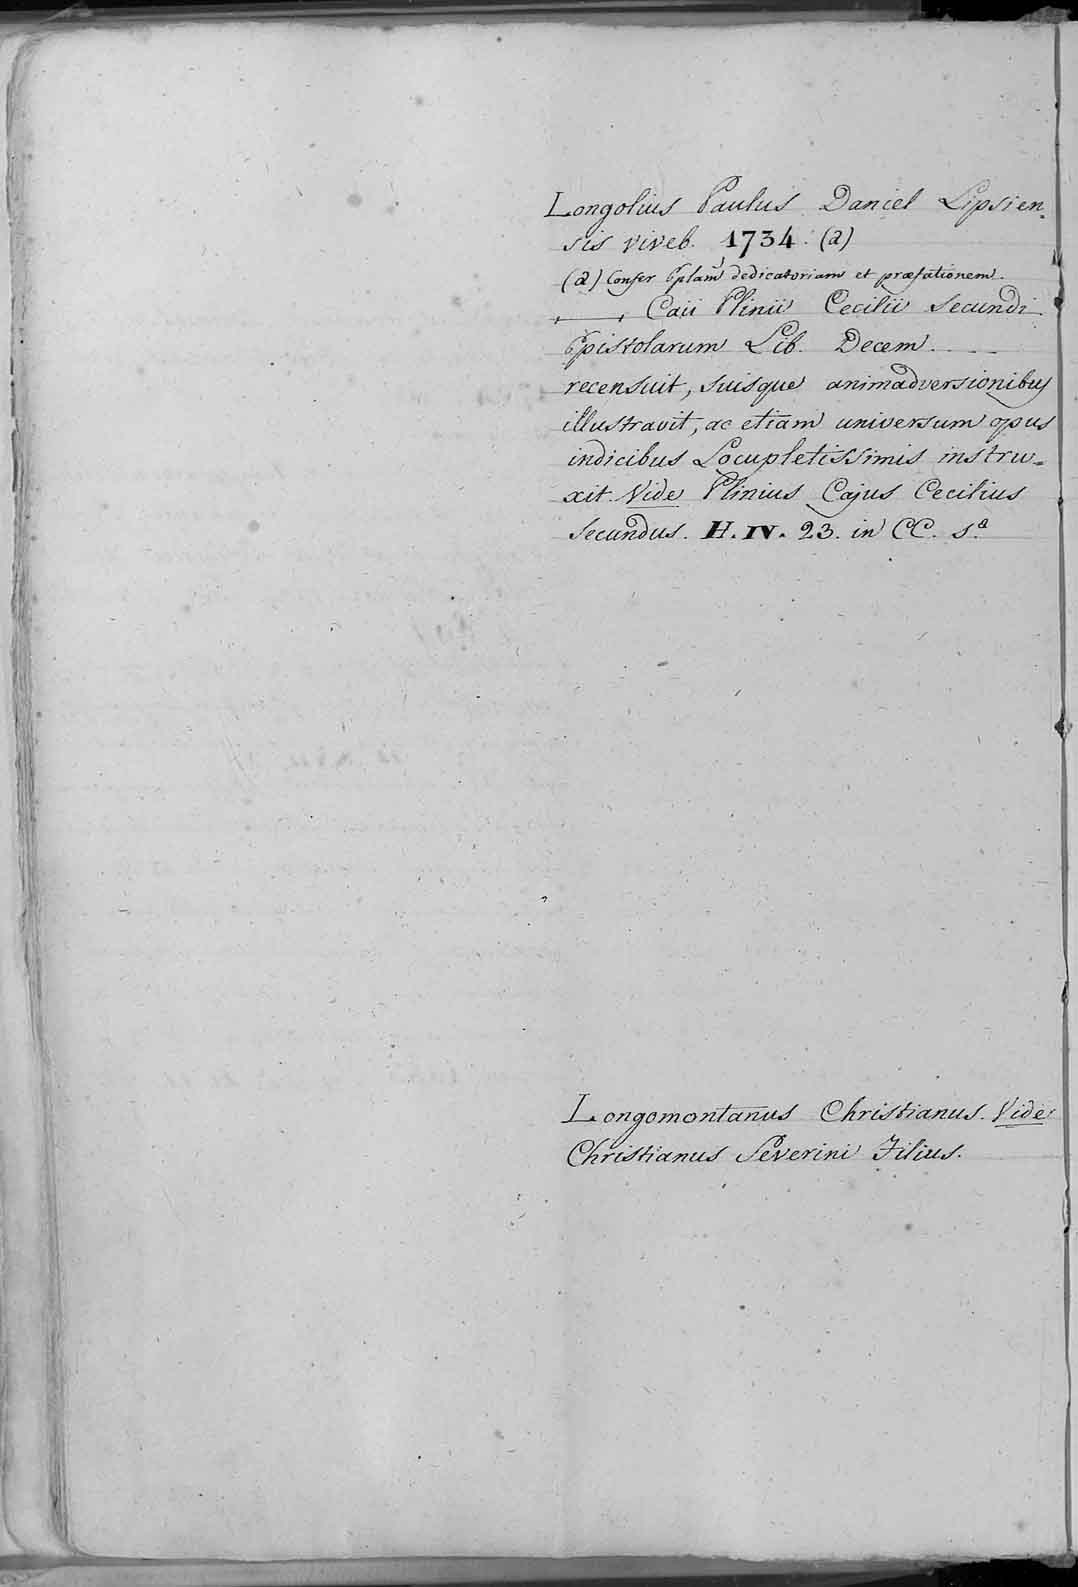 Longolius Paulus Daniel Lipsien-
sis viveb. 1734. (a)
(a) Confer Eplam dedicatoriam et præfationem.
Caii Plinii Cecilii Secundi
Epistolarum Lib. Decem. ....
recensuit, suisque animadversionibus
illustravit, ac etiam universum opus
indicibus Locupletissimis instru=
xit. Vide Plinius Cajus Cecilius
Secundus. H. IV. 23. in CC. s.a
Longomontanus Christianus. Vide
Christianus Severini Filius.